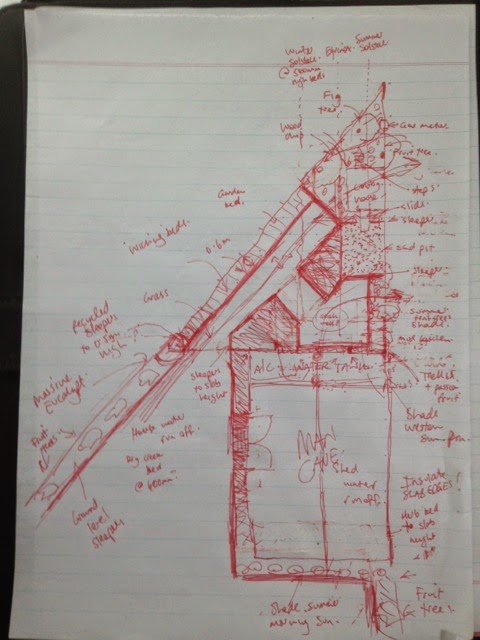 Winter
Solstice.
Equinox
Summer
Solstice
Fig
tree
Wood
Garden
bed.
fruit tree.
steps
slide
sleeper
Wicking beds.
0.6m
sand pit
Grass
sleepers
recycled
sleepers
to 0.5m
high.
summer
shade.
mud kitchen
Massive
Eucalypt
sleepers
to slab
height
A/C + WATER TANKS
TRELLIS
+ passion
fruit
Shade
Western
Sun
Fruit
trees.
House water
run off.
Dry creek
bed
@ 600mm
MAN
CAVE.
Shed
water
runoff.
Insulate
SLAB EDGES!
bed
to slab
height
Ground
level
sleepers
Shade summer
morning sun.
Fruit
trees